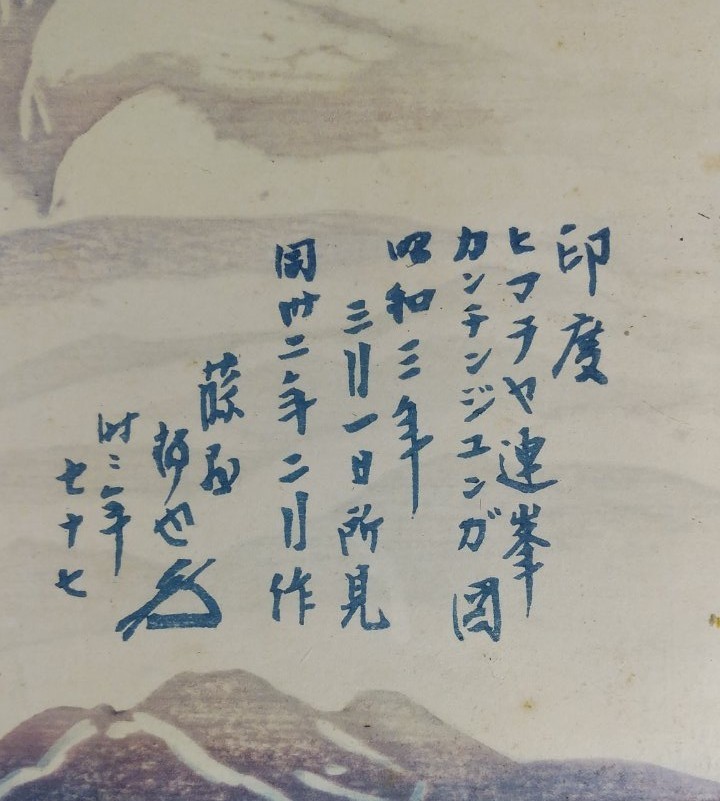 印度
ヒマラヤ連峯
カンチンジユンガ図
昭和三年
三月一日所見
同卅二年二月作
藤懸
静也
時ニ年
七十七